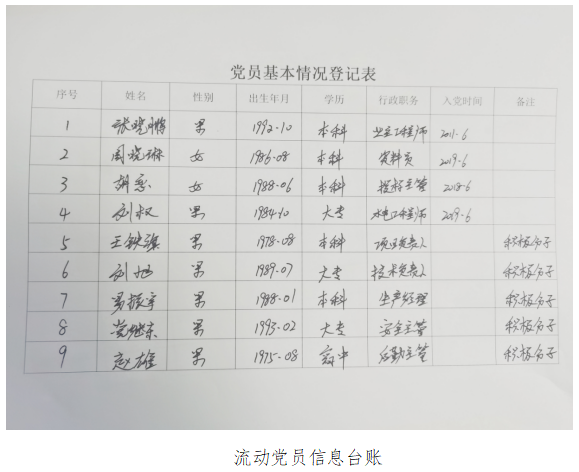 党员基本情况登记表
序号 姓名 性别 出生年月 学历 行政职务 入党时间 备注
1 张晓鹏 男 1992-10 本科 安全工程师 2011-6
2 周晓琳 女 1986-08 本科 资料员 2019-6
3 胡 女 1988-06 本科 主管 2018-6
4 刘权 男 1984-10 大专 水电工程师 2009-6
5 王铁旗 男 1978-08 本科 项目负责人 积极分子
6 刘旭 男 1989-07 大专 技术负责人 积极分子
7 易振宇 男 1988-01 本科 生产经理 积极分子
8 党继东 男 1993-02 大专 安全主管 积极分子
9 赵雄 男 1975-08 高中 后勤主管 积极分子
流动党员信息台账